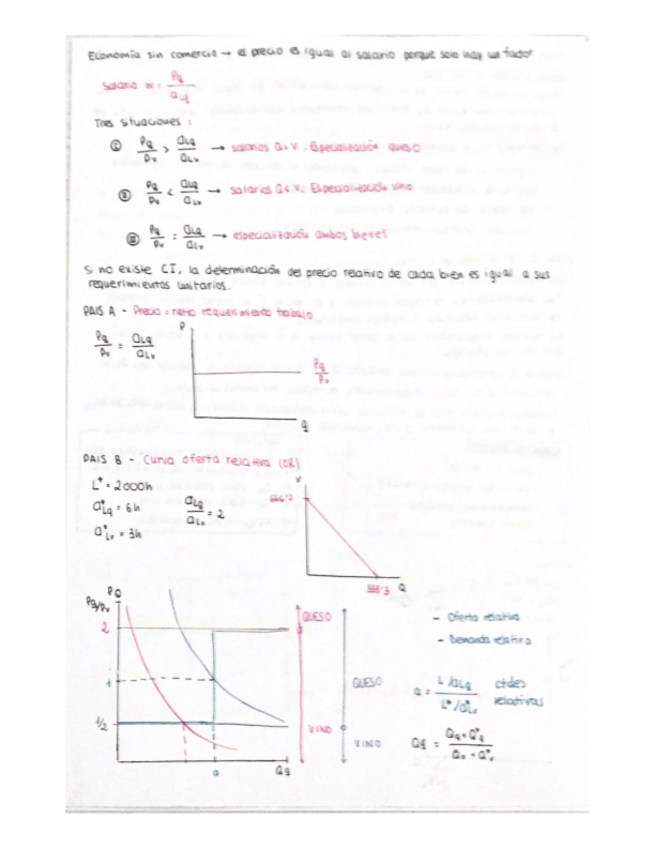 Economía sin comercio → el precio es igual al salario porque solo hay un factor
Salario w = Pq / aLq
Tres situaciones :
① Pq/Pv > aLq/aLv → salarios Q > V : Especialización queso
② Pq/Pv < aLq/aLv → salarios Q < V : Especialización vino
③ Pq/Pv = aLq/aLv → especialización ambos bienes
Si no existe CI, la determinación del precio relativo de cada bien es igual a sus
requerimientos unitarios.
PAIS A - Precio = ratio requerimiento trabajo
Pq/Pv = aLq/aLv
P
Pq/Pv
q
PAIS B - Curva oferta relativa (OR)
L* = 2000h
a*Lq = 6h
aLq/aLv = 2
a*Lv = 3h
V
666'7
333'3
Q
PQ
Pq/Pv
2
1
1/2
a
Qq
QUESO
VINO
QUESO
VINO
- Oferta relativa
- Demanda relativa
a = L/aLq / L*/a*Lv ctdes relativas
Qq = Qq + Q*q / Qv + Q*v